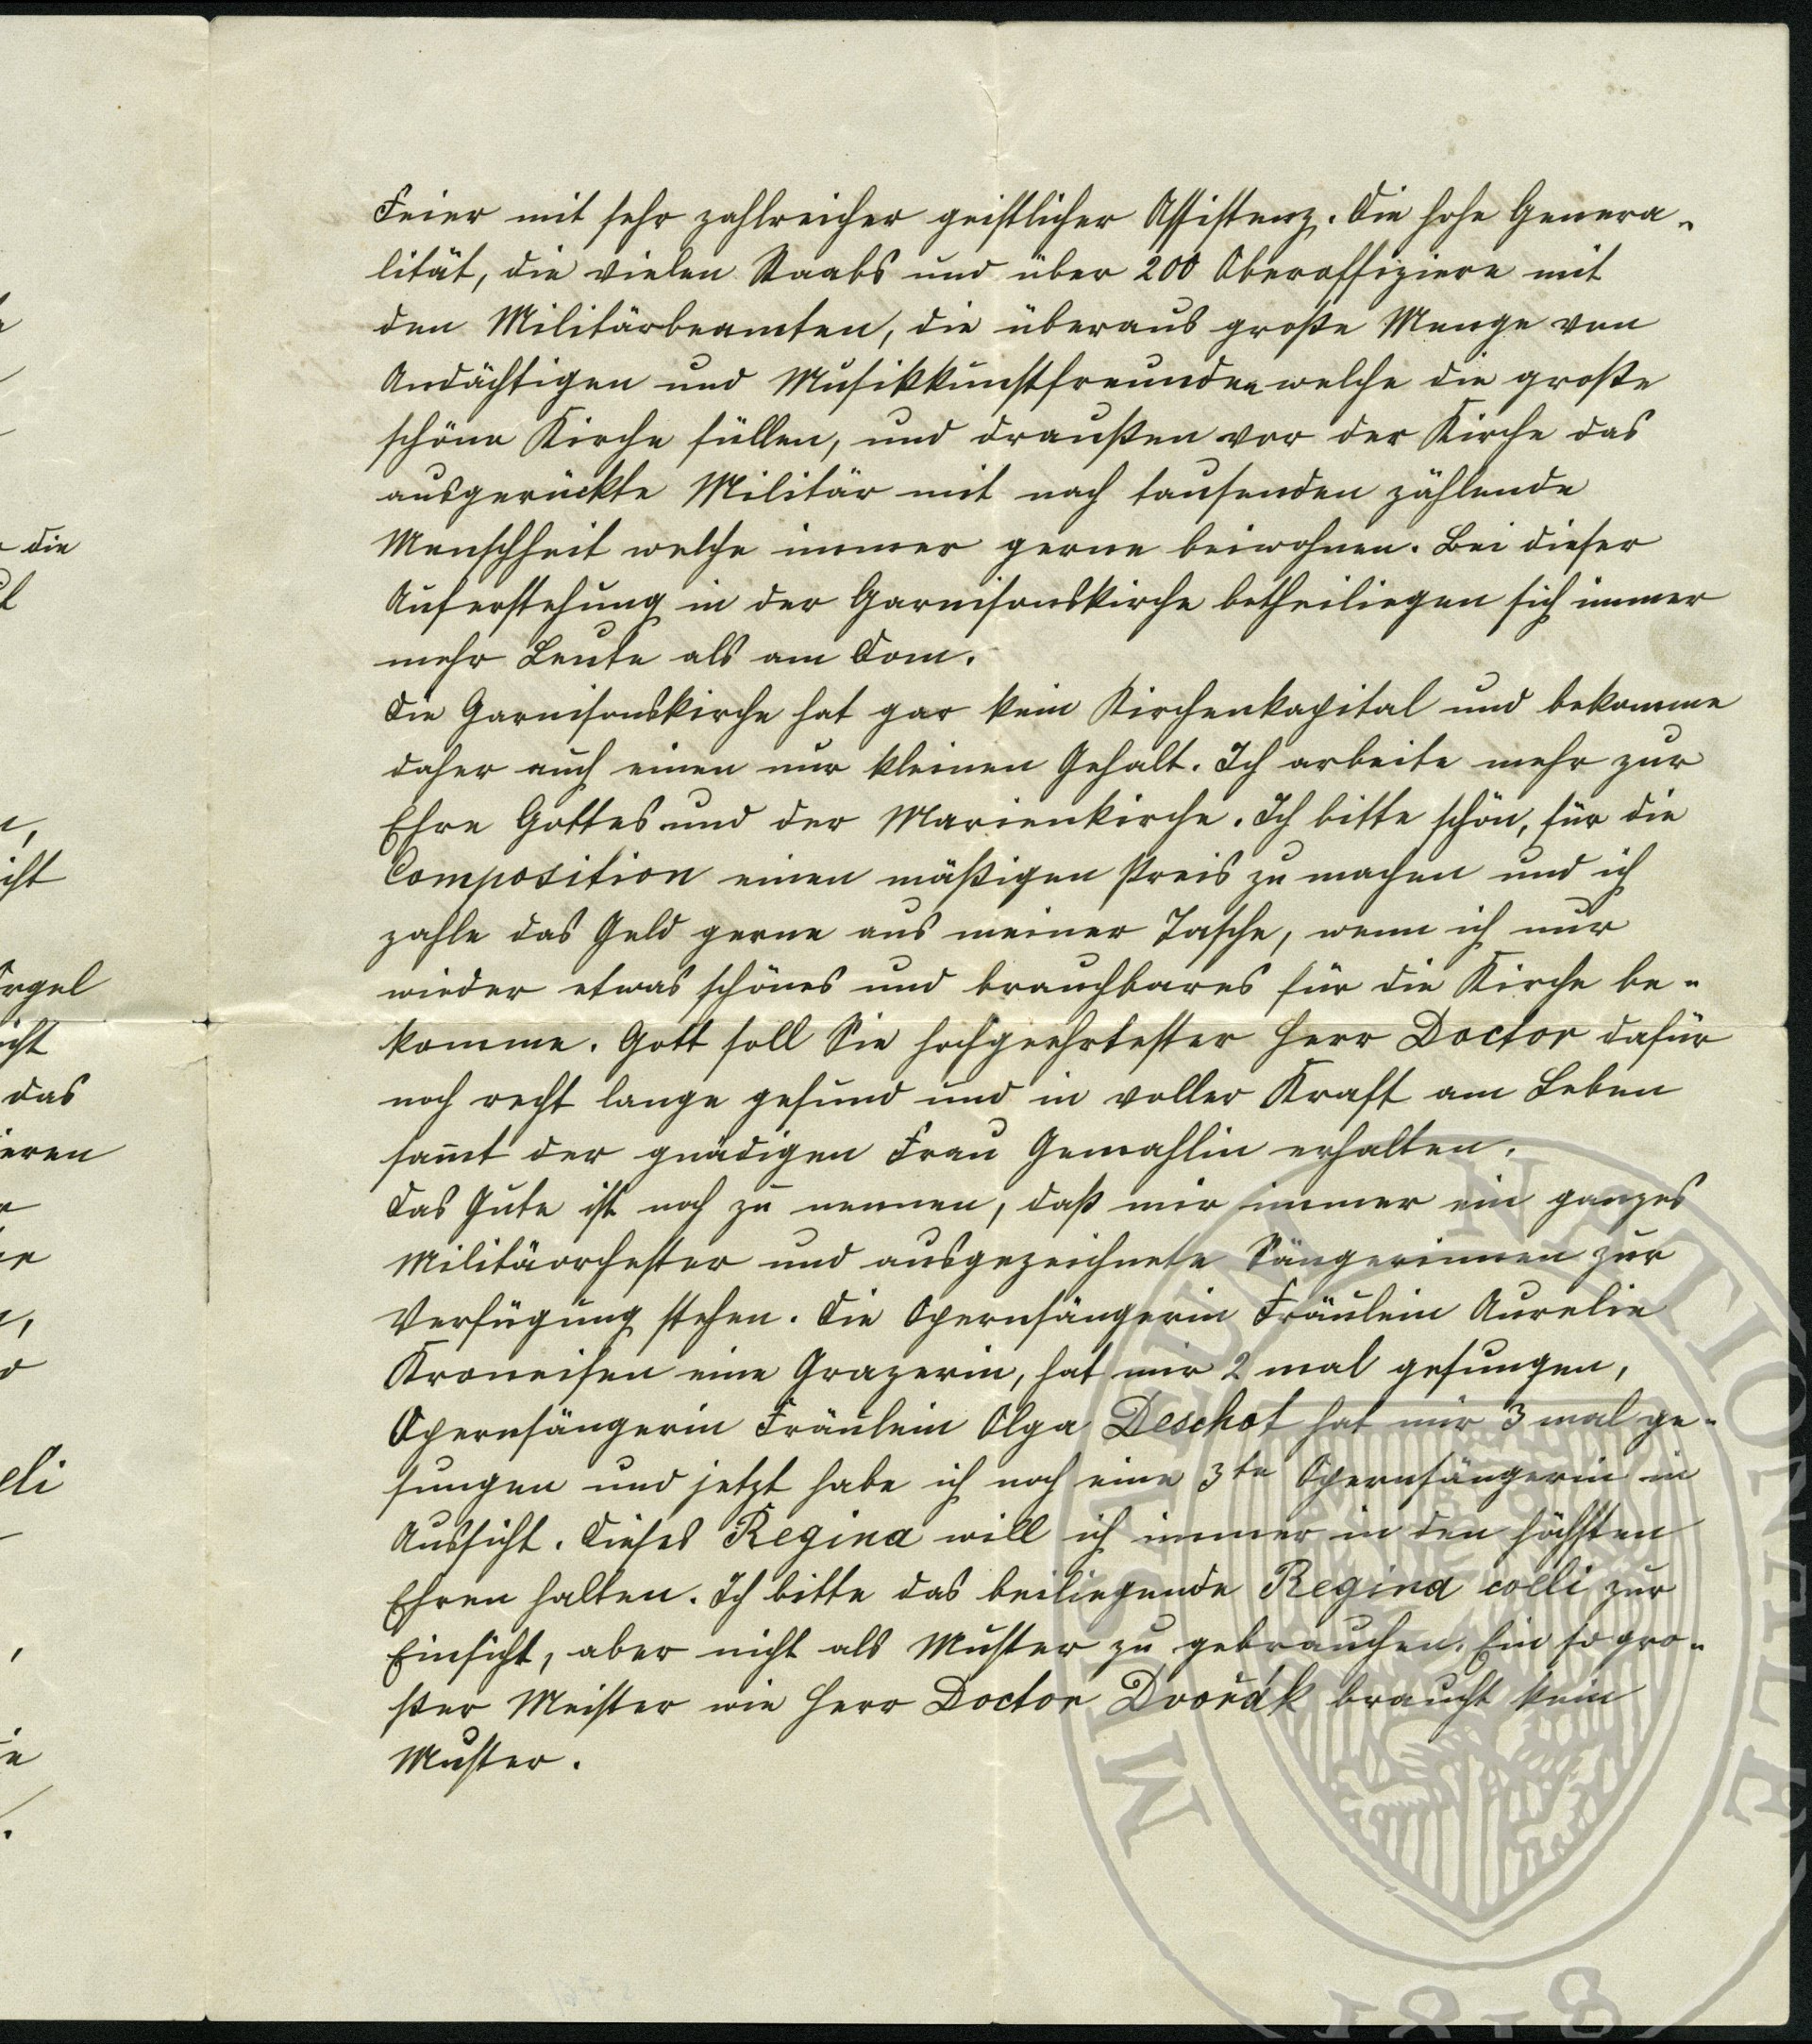 Feier mit sehr zahlreicher geistlicher Assistenz. Die hohe Genera-
lität, die vielen Staabs und über 200 Oberoffiziere mit
den Militärbeamten, die überaus große Menge von
Andächtigen und Musikkunstfreunden welche die große
schöne Kirche füllen, und draußen vor der Kirche das
ausgerückte Militär mit nach tausenden zählende
Menschheit welche immer gerne beiwohnen. Bei dieser
Auferstehung in der Garnisonskirche betheiliegen sich immer
mehr Leute als am Dom.
Die Garnisonskirche hat gar kein Kirchenkapital und bekomme
daher auch einen nur kleinen Gehalt. Ich arbeite mehr zur
Ehre Gottes und der Marienkirche. Ich bitte schön, für die
Composition einen mäßigen Preis zu machen und ich
zahle das Geld gerne aus meiner Tasche, wenn ich nur
wieder etwas schönes und brauchbares für die Kirche be-
komme. Gott soll Sie hochgeehrtester Herr Doctor dafür
noch recht lange gesund und in voller Kraft am Leben
sam̄t der gnädigen Frau Gemahlin erhalten.
Das Gute ist noch zu nennen, daß mir immer ein ganzes
Militäorchester und ausgezeichnete Sängerinnen zur
Verfügung stehen. Die Opernsängerin Fräulein Aurelie
Kroneisen eine Grazerin, hat mir 2 mal gesungen,
Opernsängerin Fräulein Olga Deschot hat mir 3 mal ge-
sungen und jetzt habe ich noch eine 3te Opernsängerin in
Aussicht. Dieses Regina will ich immer in den höchsten
Ehren halten. Ich bitte das beiliegende Regina coeli zur
Einsicht, aber nicht als Muster zu gebrauchen. Ein so gro-
ßer Meister wie Herr Doctor Dvořák braucht kein
Muster.
die
Orgel
das
MUSEUM NATIONALE
1818